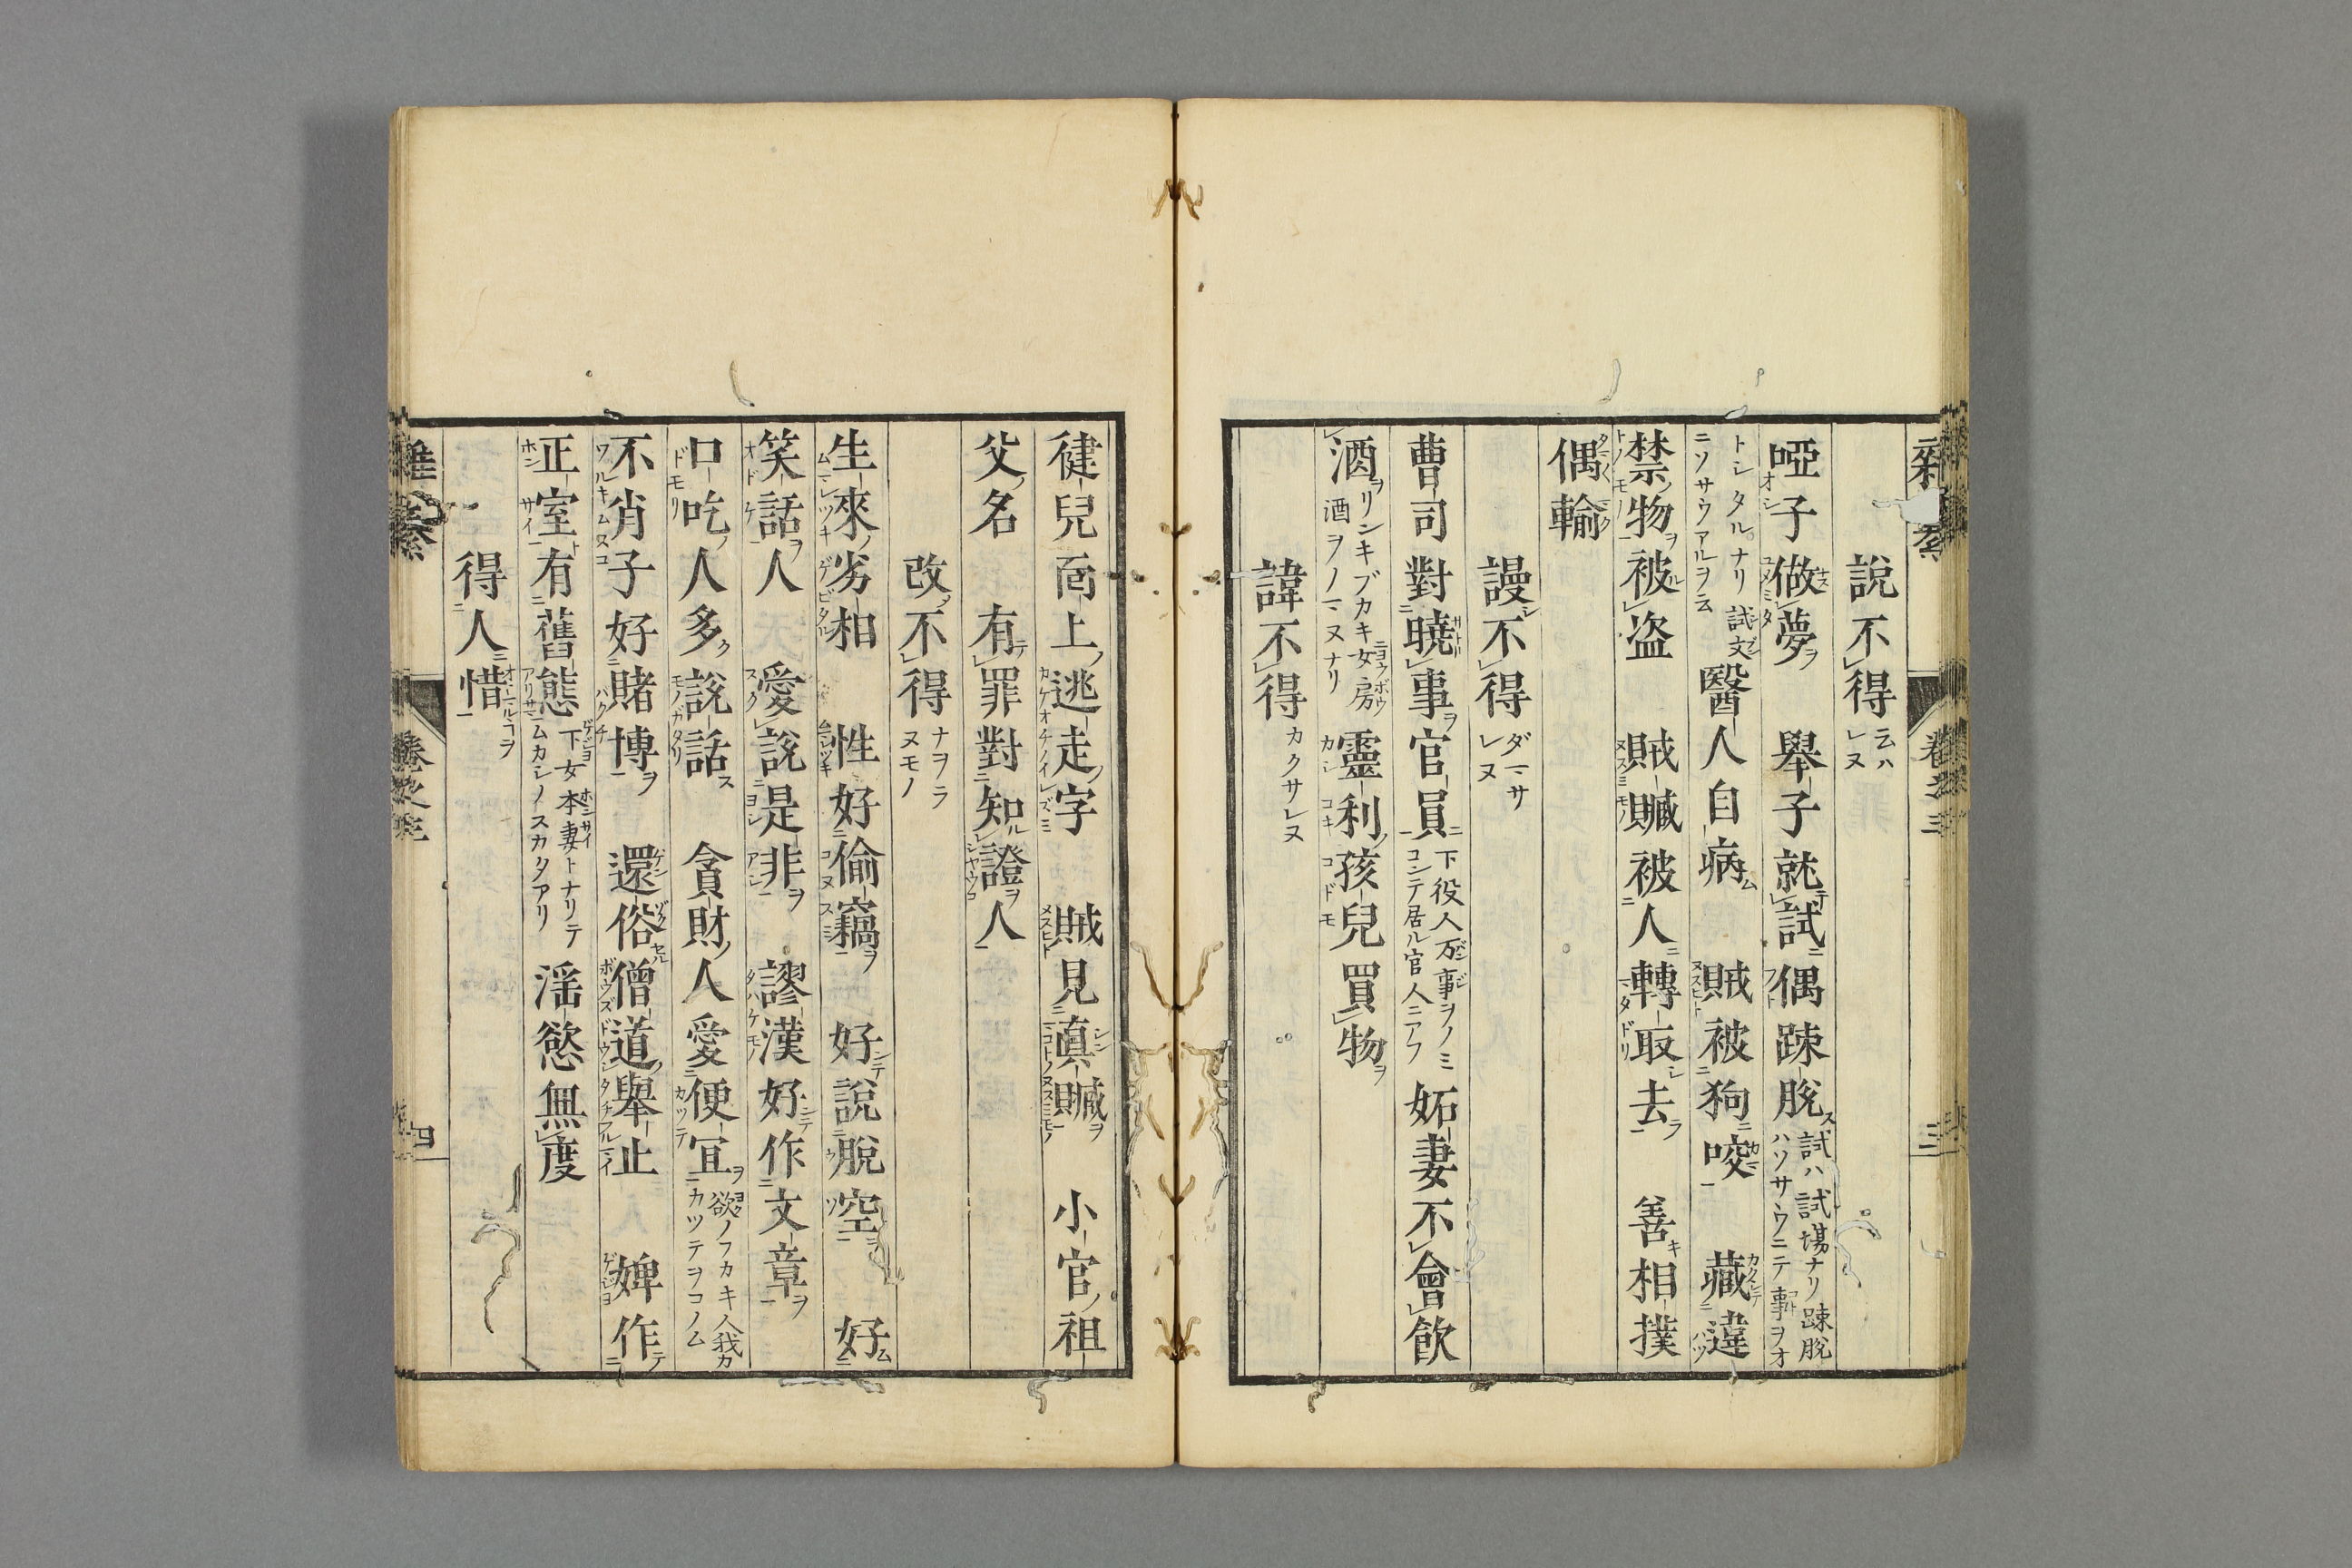 說不得 云ハレヌ
啞子做夢 舉子就試偶踈脫 試ハ試場ナリ踈脫ハソサウニテ事ヲオ
トシタルナリ試文ニソサウアルヲ云 醫人自病 賊被狗咬 藏違
禁物被盜 賊贓被人轉取去 善相撲
偶輸
謾不得 ダマサレヌ
曹司對曉事官員 下役人万事ヲノミコンテ居ル官人ニアフ 妬妻不會飲
酒 リンキブカキ女房酒ヲノマヌナリ 靈利孩兒買物
諱不得 カクサレヌ
健兒面上逃走字 賊見眞贓 小官祖
父名 有罪對知證人
改不得 ナヲラヌモノ
生來劣相 性好偷竊 好說脫空 好
笑話人 愛說是非 謬漢好作文章
口吃人多說話 貪財人愛便宜 欲ノフカキ人我カカツテヲコノム
不肖子好賭博 還俗僧道舉止 婢作
正室有舊態 下女本妻トナリテムカシノスカタアリ 淫慾無度
得人惜
卷之三
三
四